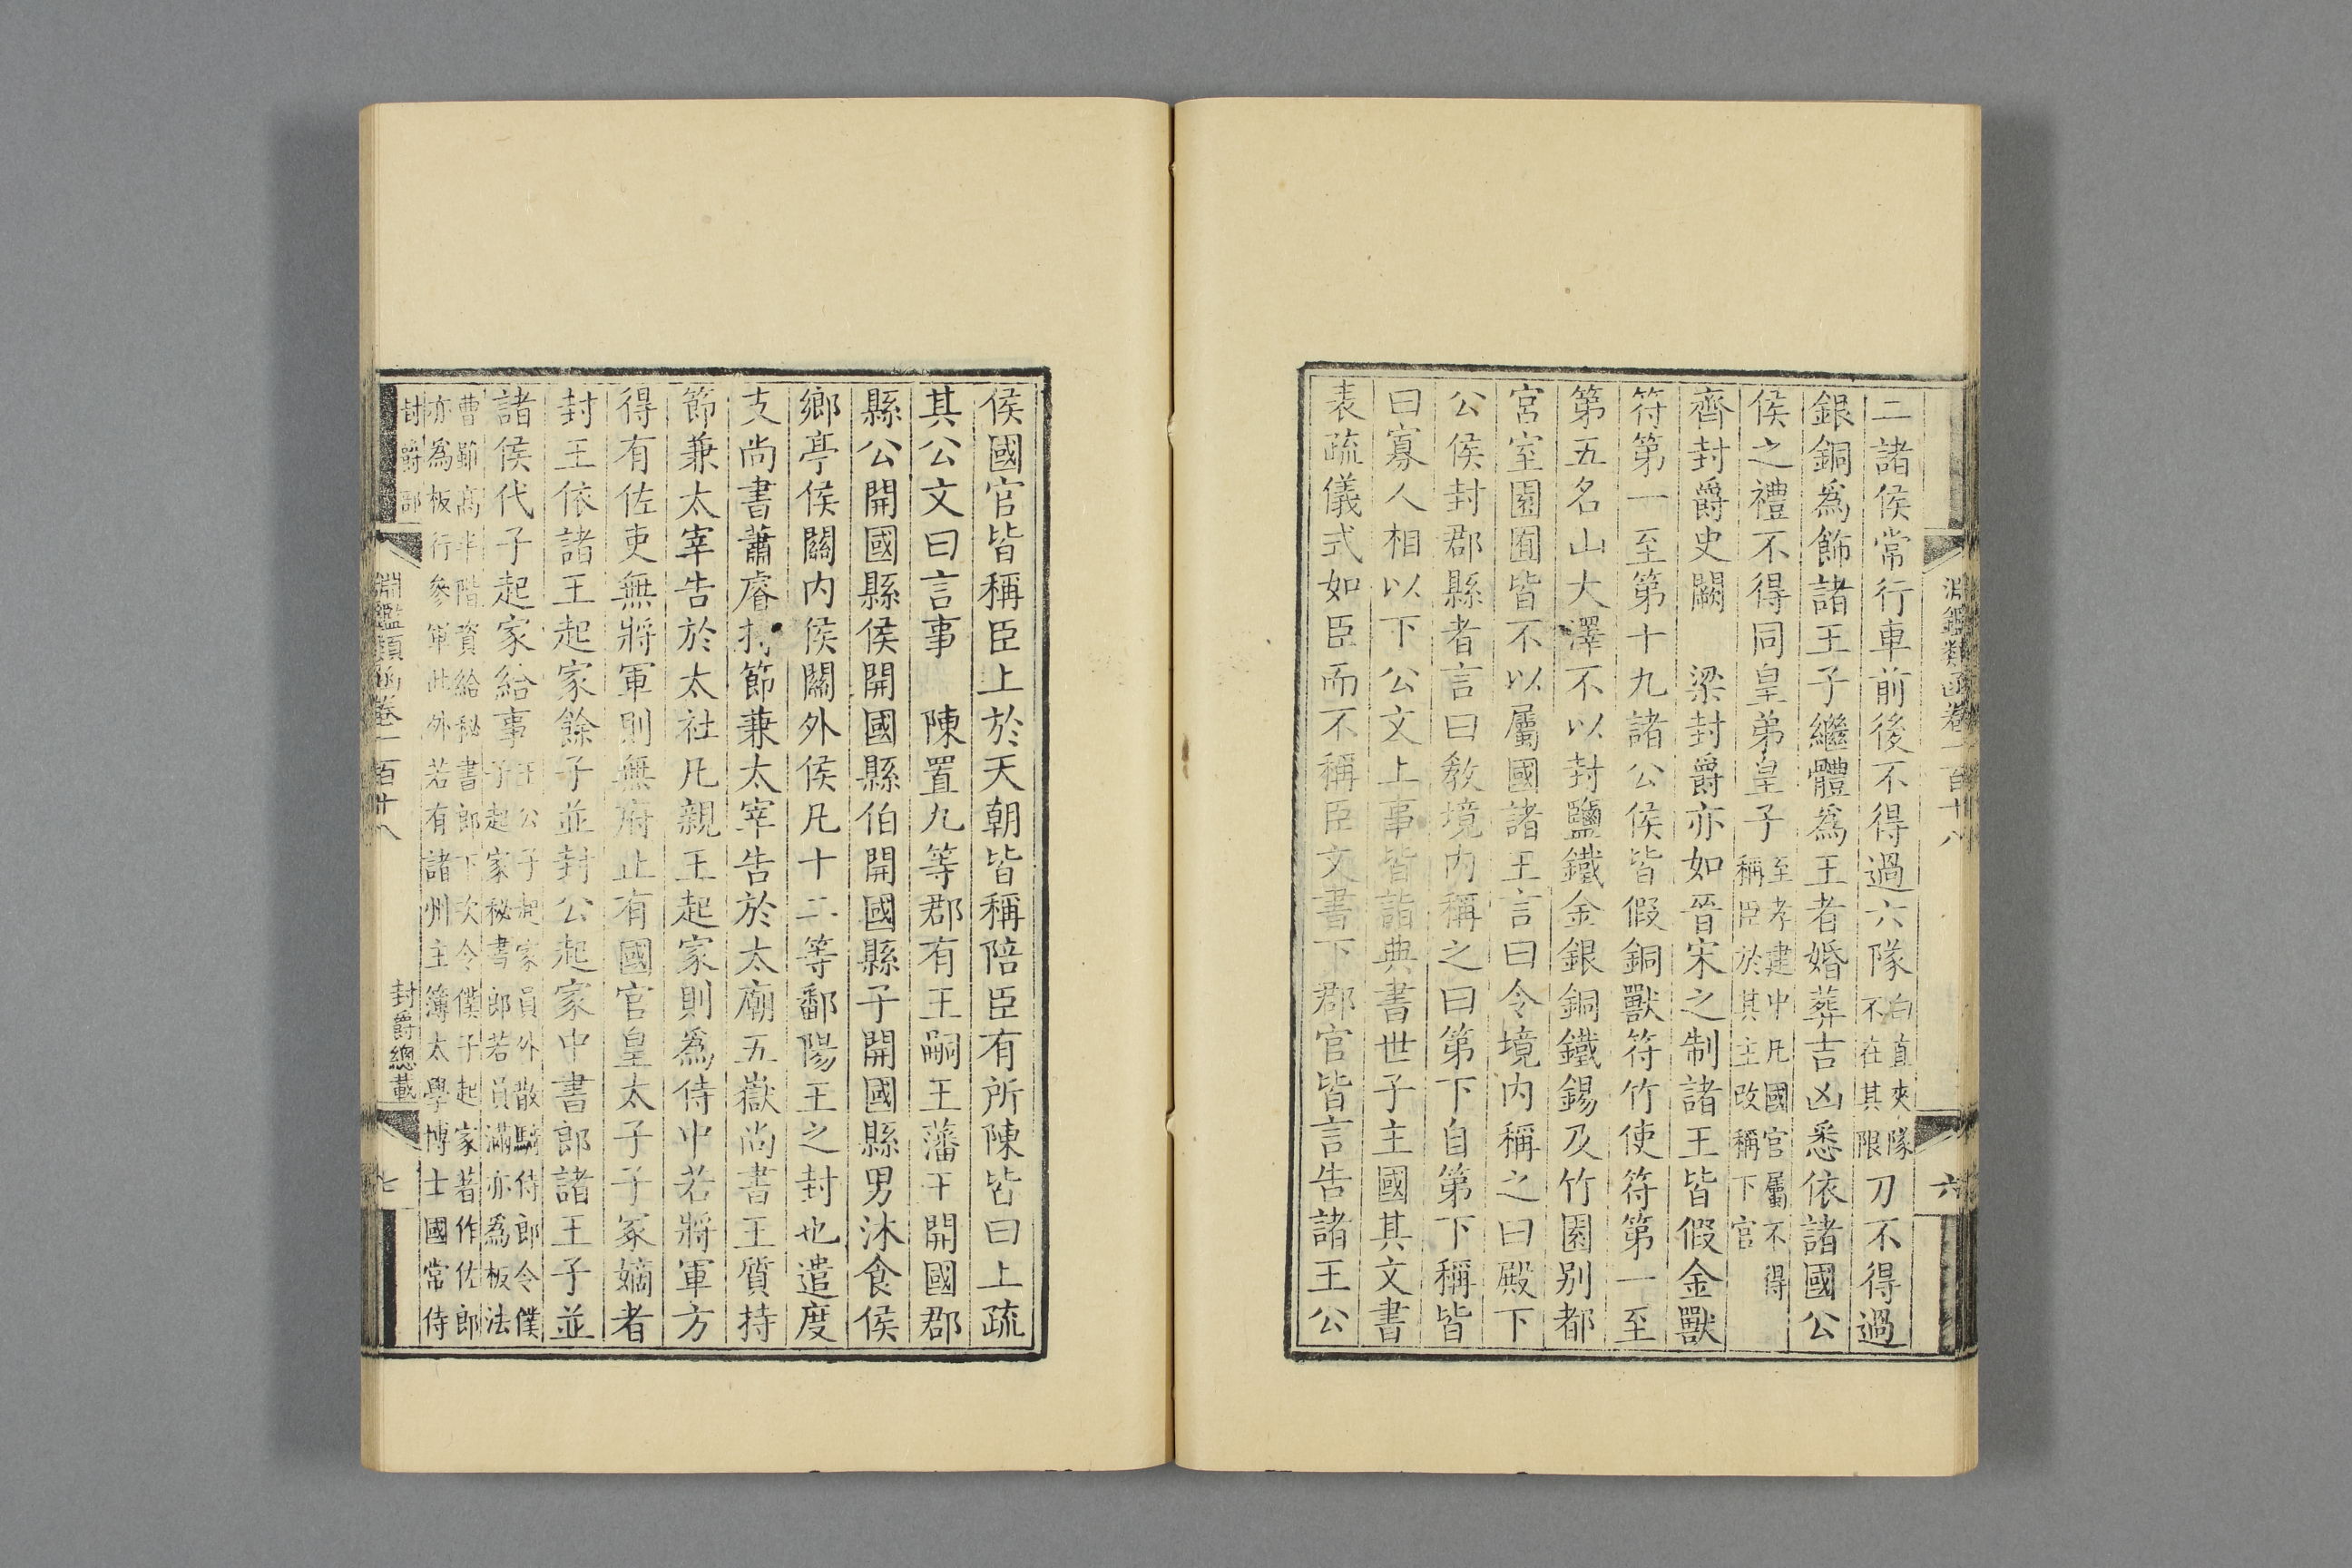 淵鑑類函卷一百十八
六
二諸侯常行車前後不得過六隊白直夾隊不在其限刀不得過
銀銅爲飾諸王子繼體爲王者婚葬吉凶悉依諸國公
侯之禮不得同皇弟皇子至孝建中凡國官屬不得稱臣於其主改稱下官
齊封爵史闕 梁封爵亦如晉宋之制諸王皆假金獸
符第一至第十九諸公侯皆假銅獸符竹使符第一至
第五名山大澤不以封鹽鐵金銀銅鐵錫及竹園別都
宮室園囿皆不以屬國諸王言曰令境內稱之曰殿下
公侯封郡縣者言曰敎境內稱之曰第下自第下稱皆
曰寡人相以下公文上事皆詣典書世子主國其文書
表疏儀式如臣而不稱臣文書下郡官皆言告諸王公
侯國官皆稱臣上於天朝皆稱陪臣有所陳皆曰上疏
其公文曰言事 陳置九等郡有王嗣王藩王開國郡
縣公開國縣侯開國縣伯開國縣子開國縣男沐食侯
鄉亭侯關內侯關外侯凡十二等鄱陽王之封也遣度
支尚書蕭睿持節兼太宰告於太廟五嶽尚書王質持
節兼太宰告於太社凡親王起家則爲侍中若將軍方
得有佐吏無將軍則無府止有國官皇太子子冢嫡者
封王依諸王起家餘子並封公起家中書郎諸王子並
諸侯代子起家給事王公子起家員外散騎侍郎令僕子起家秘書郎若員滿亦爲板法
曹雖高半階資給秘書郎下次令僕子起家著作佐郎亦爲板行參軍此外若有諸州主簿太學博士國常侍
封爵部
淵鑑類函卷一百十八
封爵總載
七